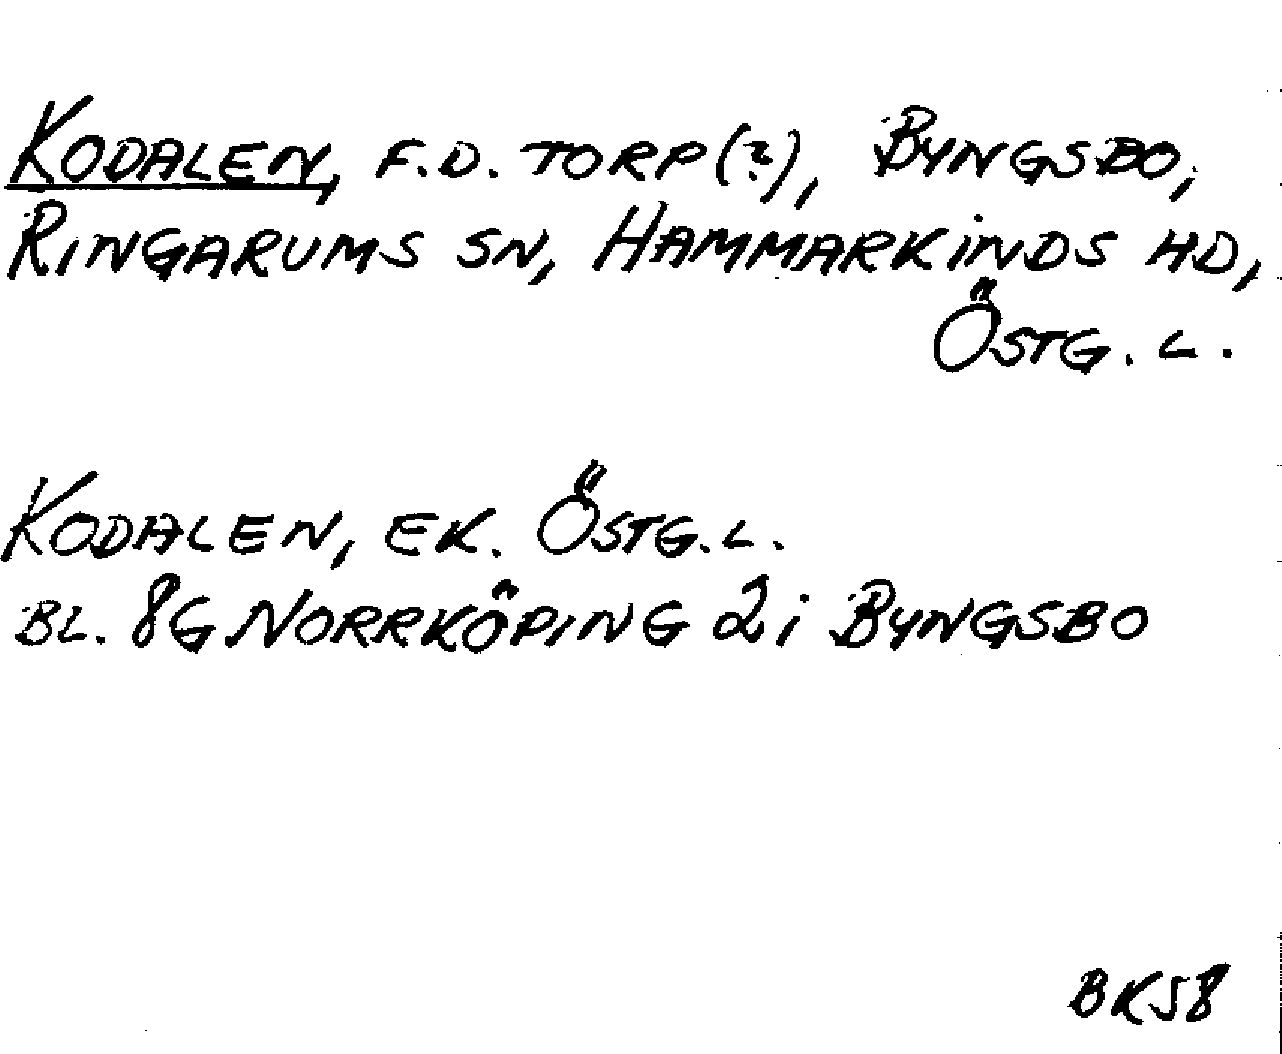 KODALEN, F.D. TORP(?), BYNGSBO,
RINGARUMS SN, HAMMARKINDS HD,
ÖSTG. L.
KODALEN, EK. ÖSTG. L.
BL. 8G NORRKÖPING 2i BYNGSBO
BK58